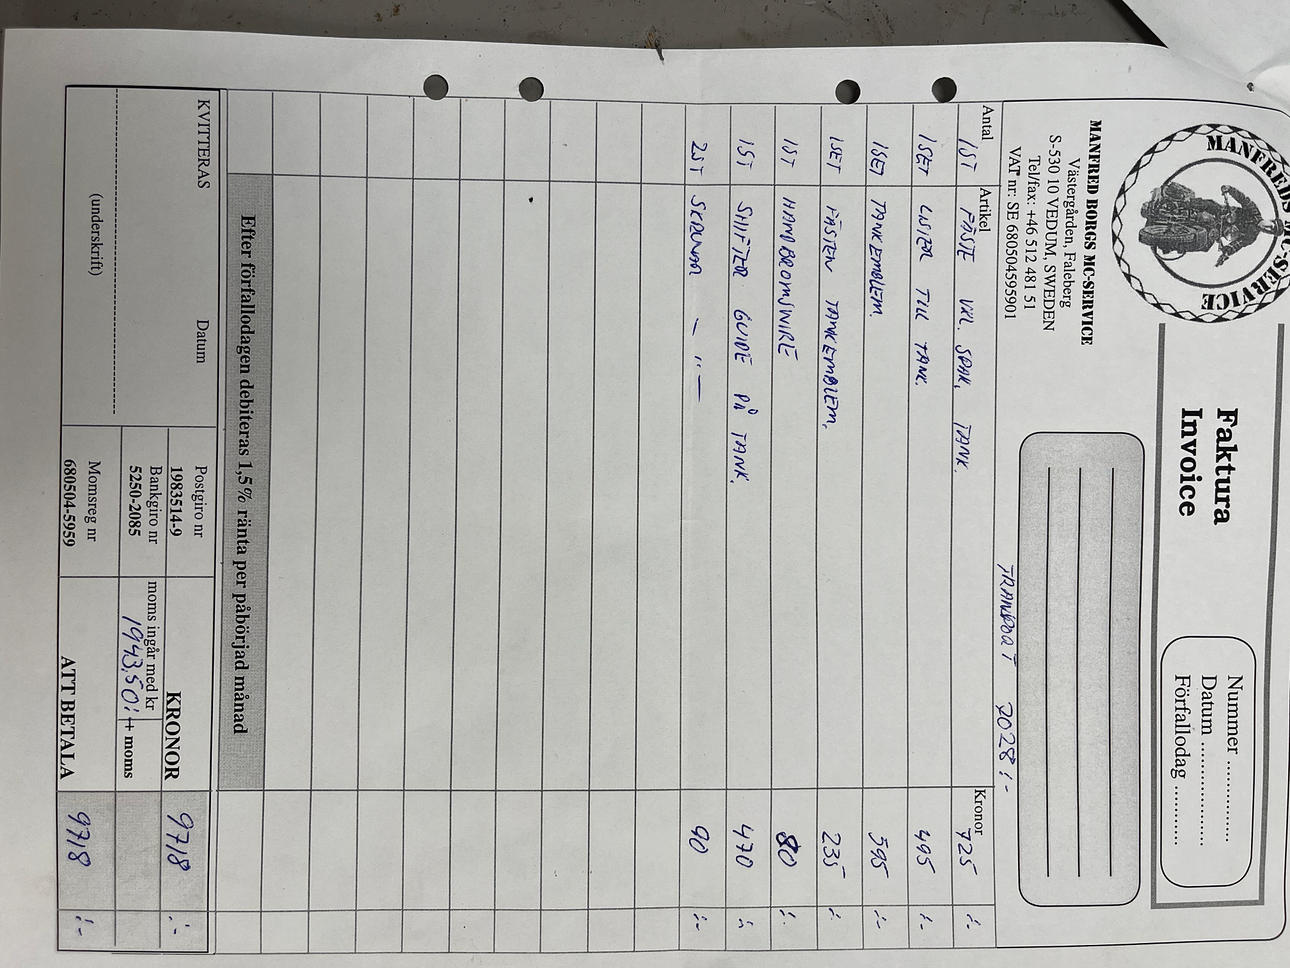 MANFREDS MC-SERVICE
Faktura
Invoice
Nummer ................
Datum ....................
Förfallodag ............
MANFRED BORGS MC-SERVICE
Västergården, Faleberg
S-530 10 VEDUM, SWEDEN
Tel/fax: +46 512 481 51
VAT nr: SE 680504595901
TRANSPORT 7028:-
Antal Artikel Kronor
1ST FÄSTE VXL. SPAK. TANK. 725 :-
1SET LISTER TILL TANK. 495 :-
1SET TANKEMBLEM. 595 :-
1SET FÄSTEN TANKEMBLEM. 235 :-
1ST HANDBROMSWIRE 80 :-
1ST SHIFTER GUIDE PÅ TANK. 470 :-
2ST SKRUVAR —"— 90 :-
Efter förfallodagen debiteras 1,5% ränta per påbörjad månad
KVITTERAS Datum
(underskrift)
Postgiro nr
1983514-9
Bankgiro nr
5250-2085
Momsreg nr
680504-5959
KRONOR 9718 :-
moms ingår med kr
1943,50:- + moms
ATT BETALA 9718 :-